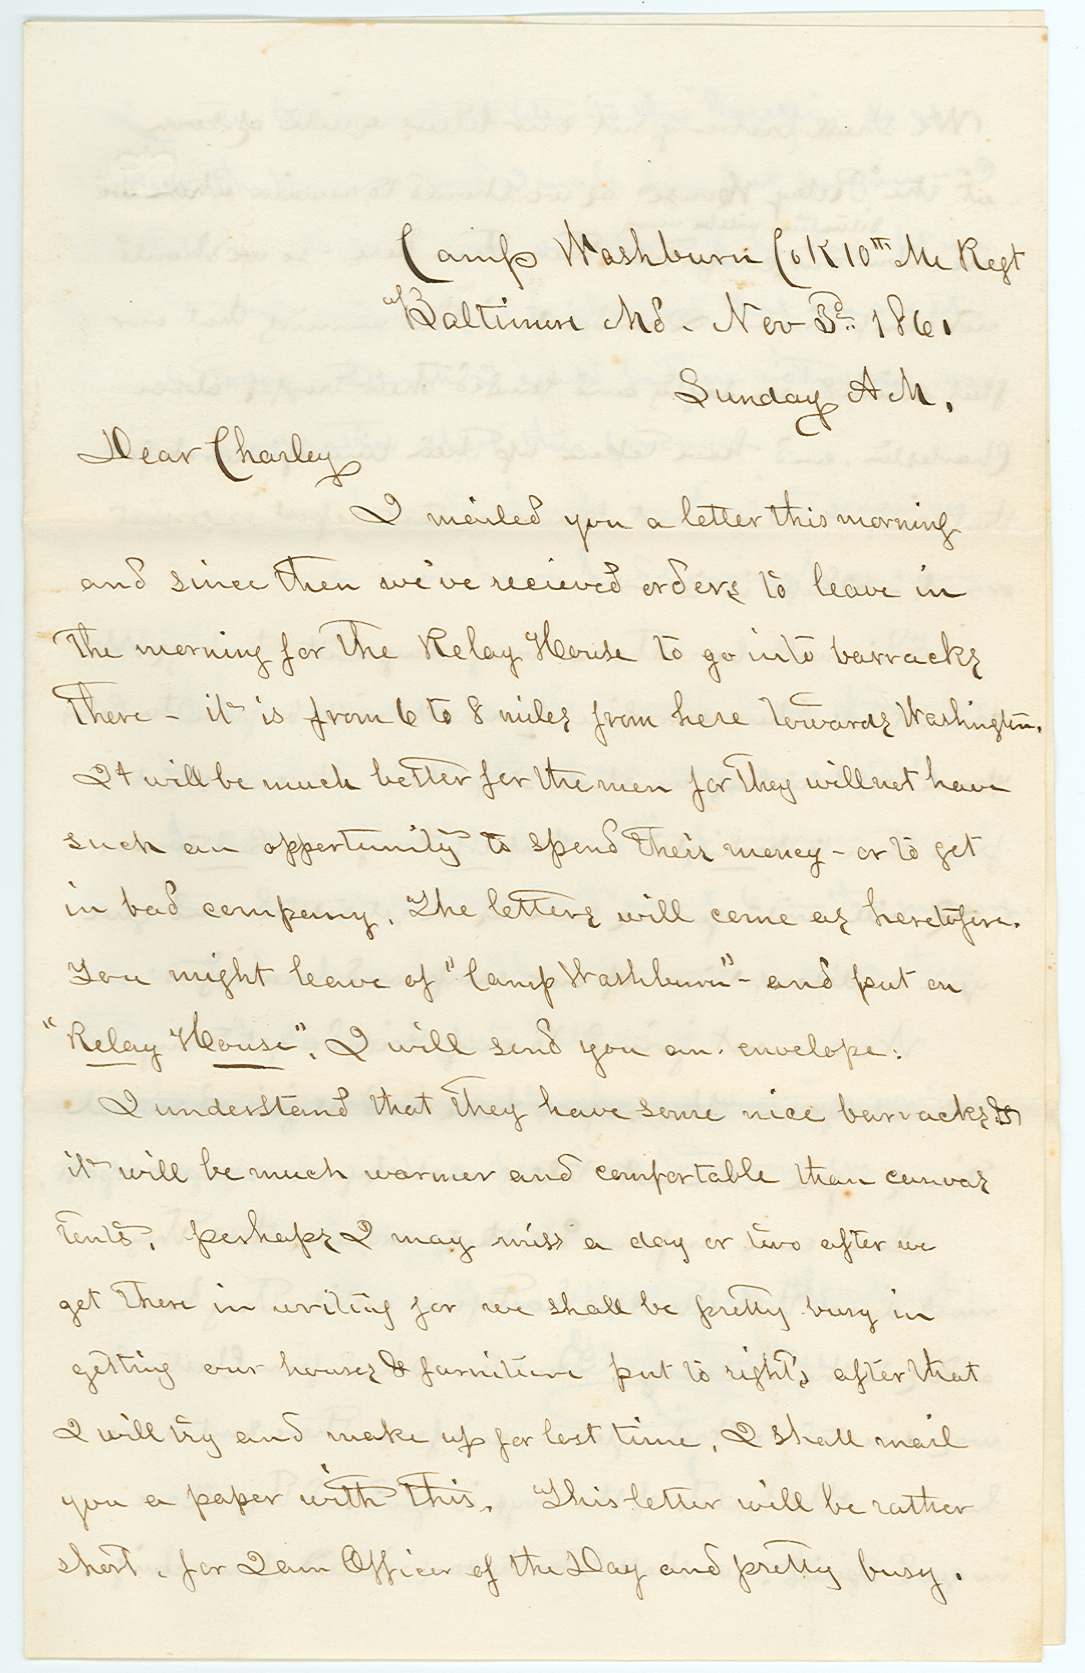 Camp Washburn Co K 10th Me Regt
Baltimore Md. Nov 3d. 1861
Sunday A M.
Dear Charley
I mailed you a letter this morning
and since then we've recieved orders to leave in
the morning for the Relay House to go into barracks
there - it is from 6 to 8 miles from here towards Washington.
It will be much better for the men for they will not have
such an opportunity to spend their money - or to get
in bad company. The letters will come as heretofore.
You might leave of "Camp Washburn" - and put on
"Relay House". I will send you an envelope.
I understand that they have some nice barracks &
it will be much warmer and comfortable than canvas
tents. perhaps I may miss a day or two after we
get there in writing for we shall be pretty busy in
getting our houses & furniture put to rights, after that
I will try and make up for lost time. I shall mail
you a paper with this. This letter will be rather
short. for I am Officer of the Day and pretty busy.